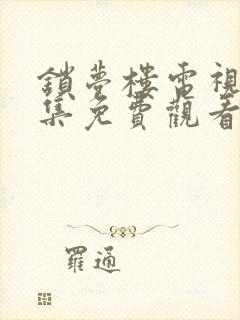 鎖夢樓電視
集免費觀看
羅通